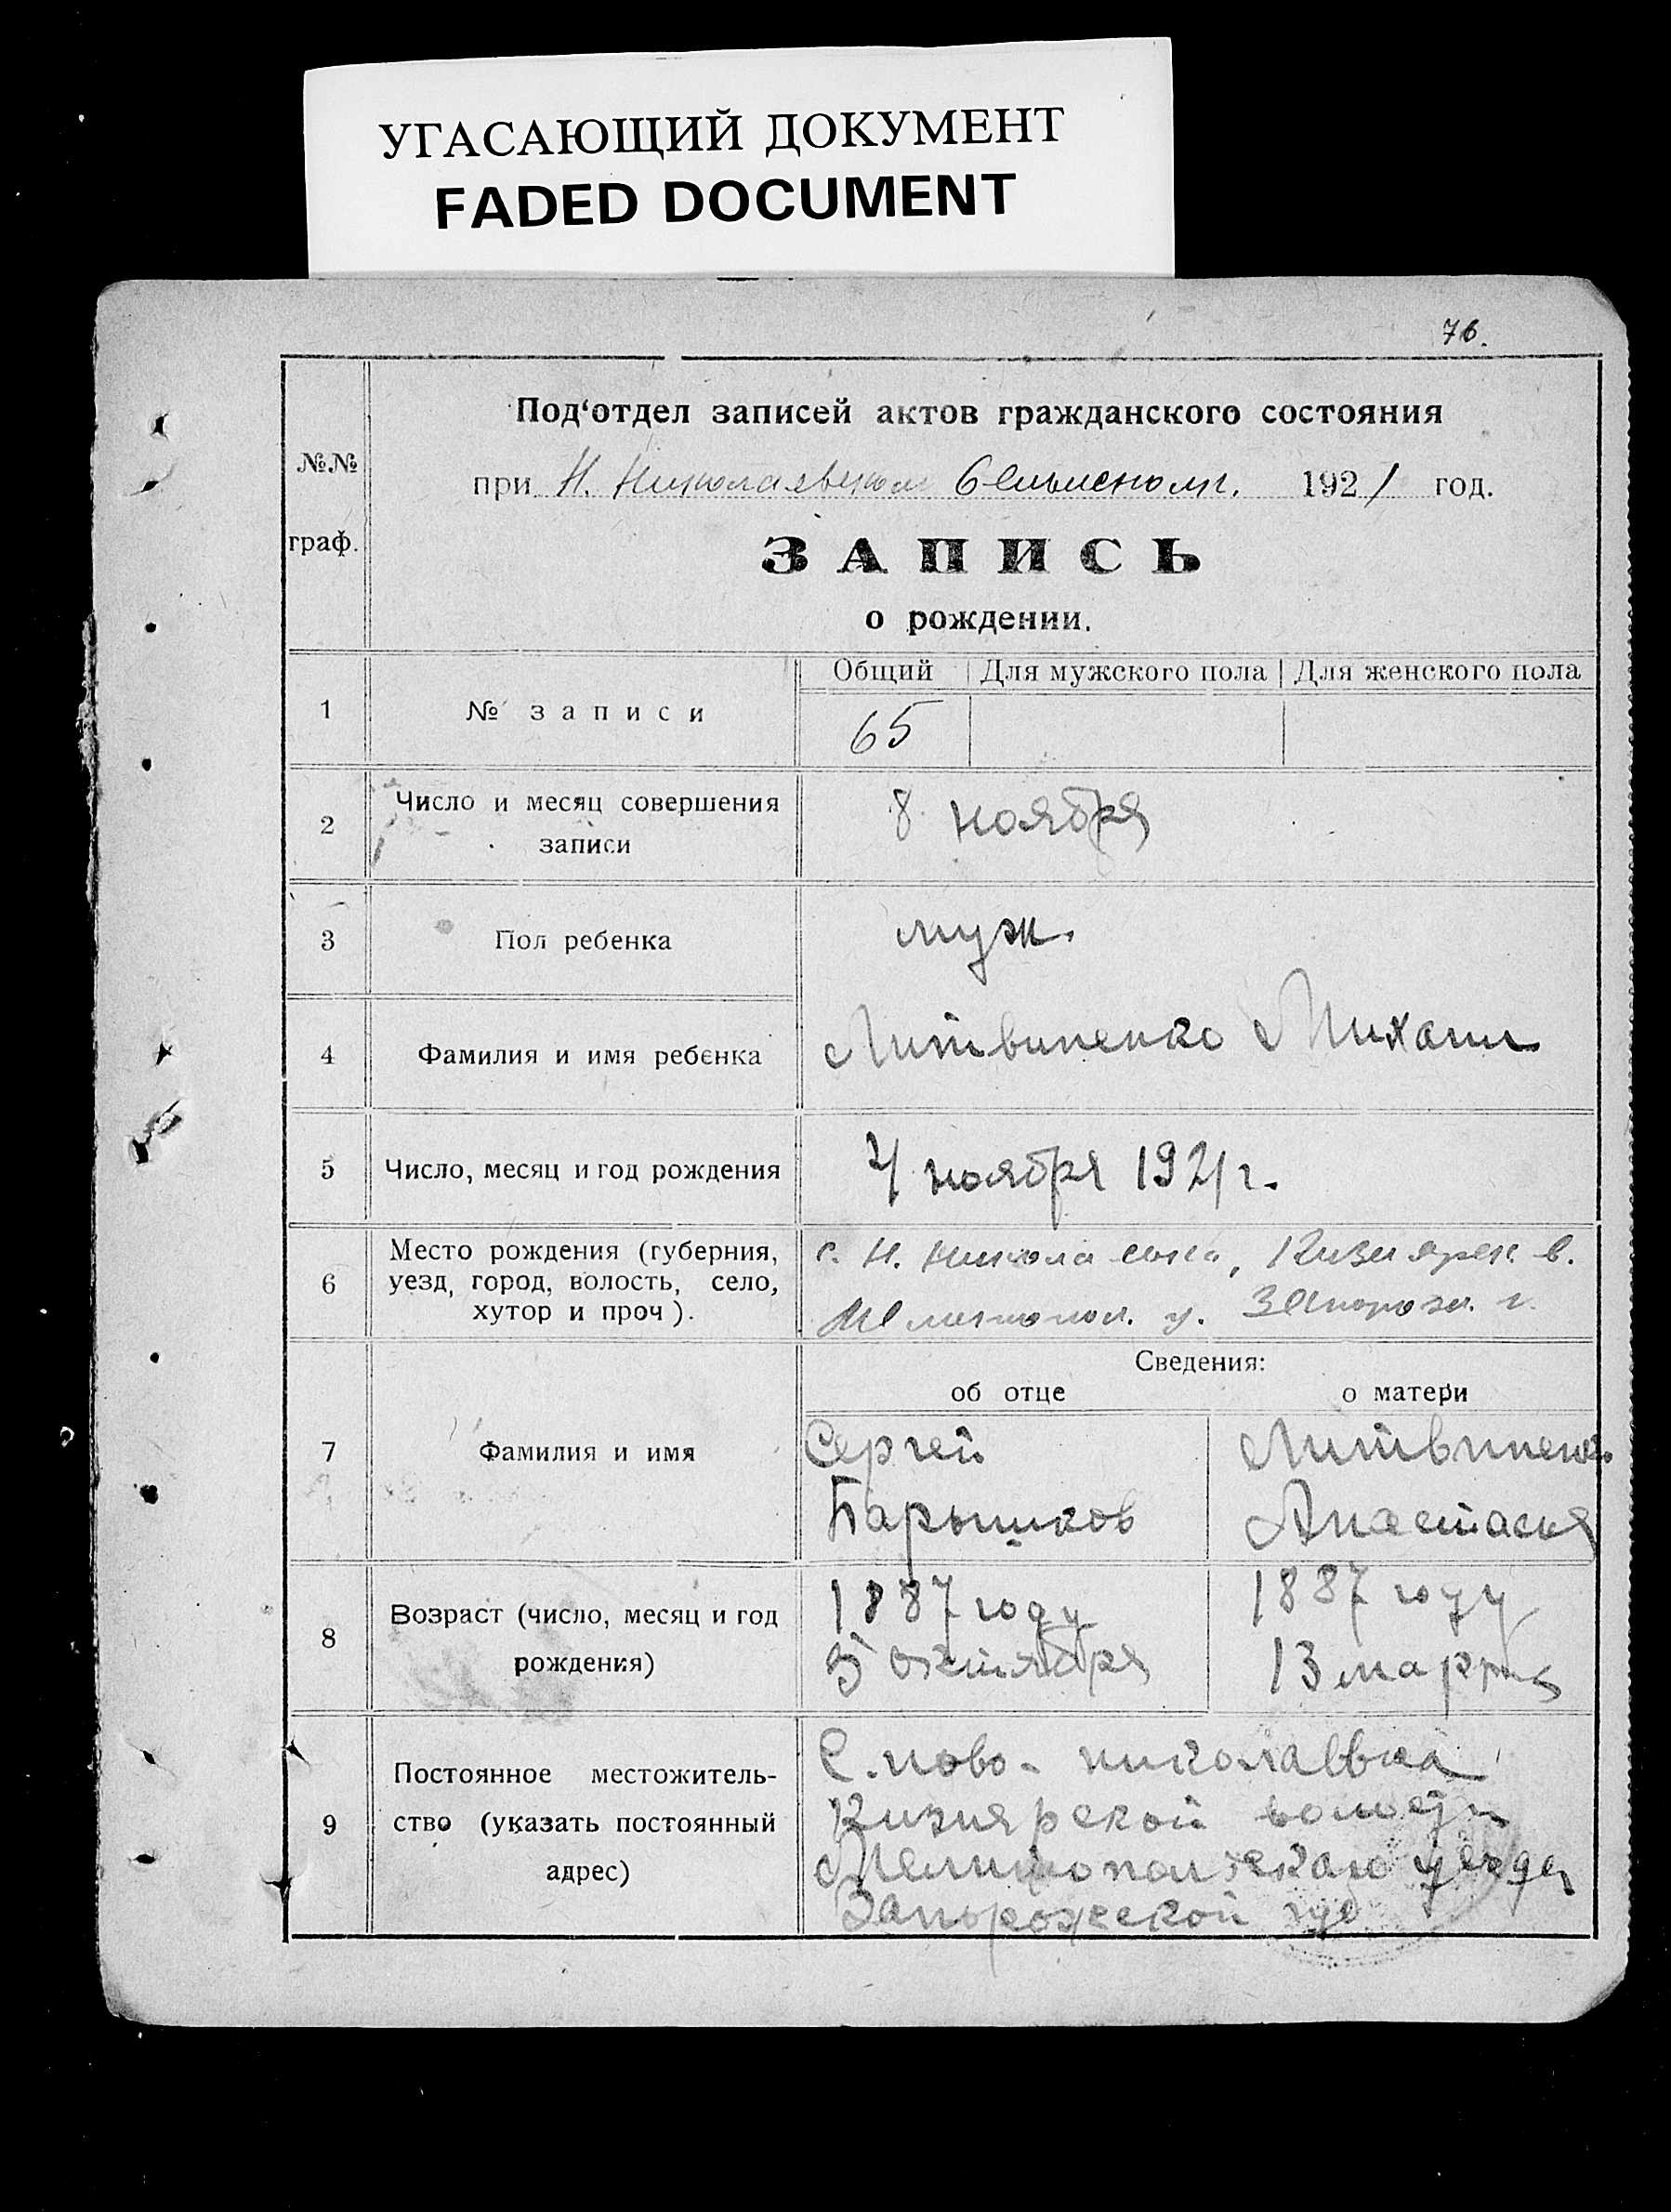 УГАСАЮЩИЙ ДОКУМЕНТ
FADED DOCUMENT
76.
Под'отдел записей актов гражданского состояния
№№
при Н. Николаевском 1921 год.
граф.
ЗАПИСЬ
о рождении.
Общий Для мужского пола Для женского пола
1 № записи 65
2 Число и месяц совершения
записи
8 ноября
3 Пол ребенка муж.
4 Фамилия и имя ребенка Литвиненко Михаил
5 Число, месяц и год рождения 4 ноября 1921 г.
6 Место рождения (губерния,
уезд, город, волость, село,
хутор и проч).
с. Н. Кизиярск. в.
Мелитопол. у. Запорож. г.
Сведения:
об отце о матери
7 Фамилия и имя
Сергей Литвиненко
Барышков Анастасия
8 Возраст (число, месяц и год
рождения)
1887 году 1887 году
5 октября 13 марта
9 Постоянное местожитель-
ство (указать постоянный
адрес)
С. ново-николаевка
Кизиярской
Мелитопольского уезда
Запорожской губ